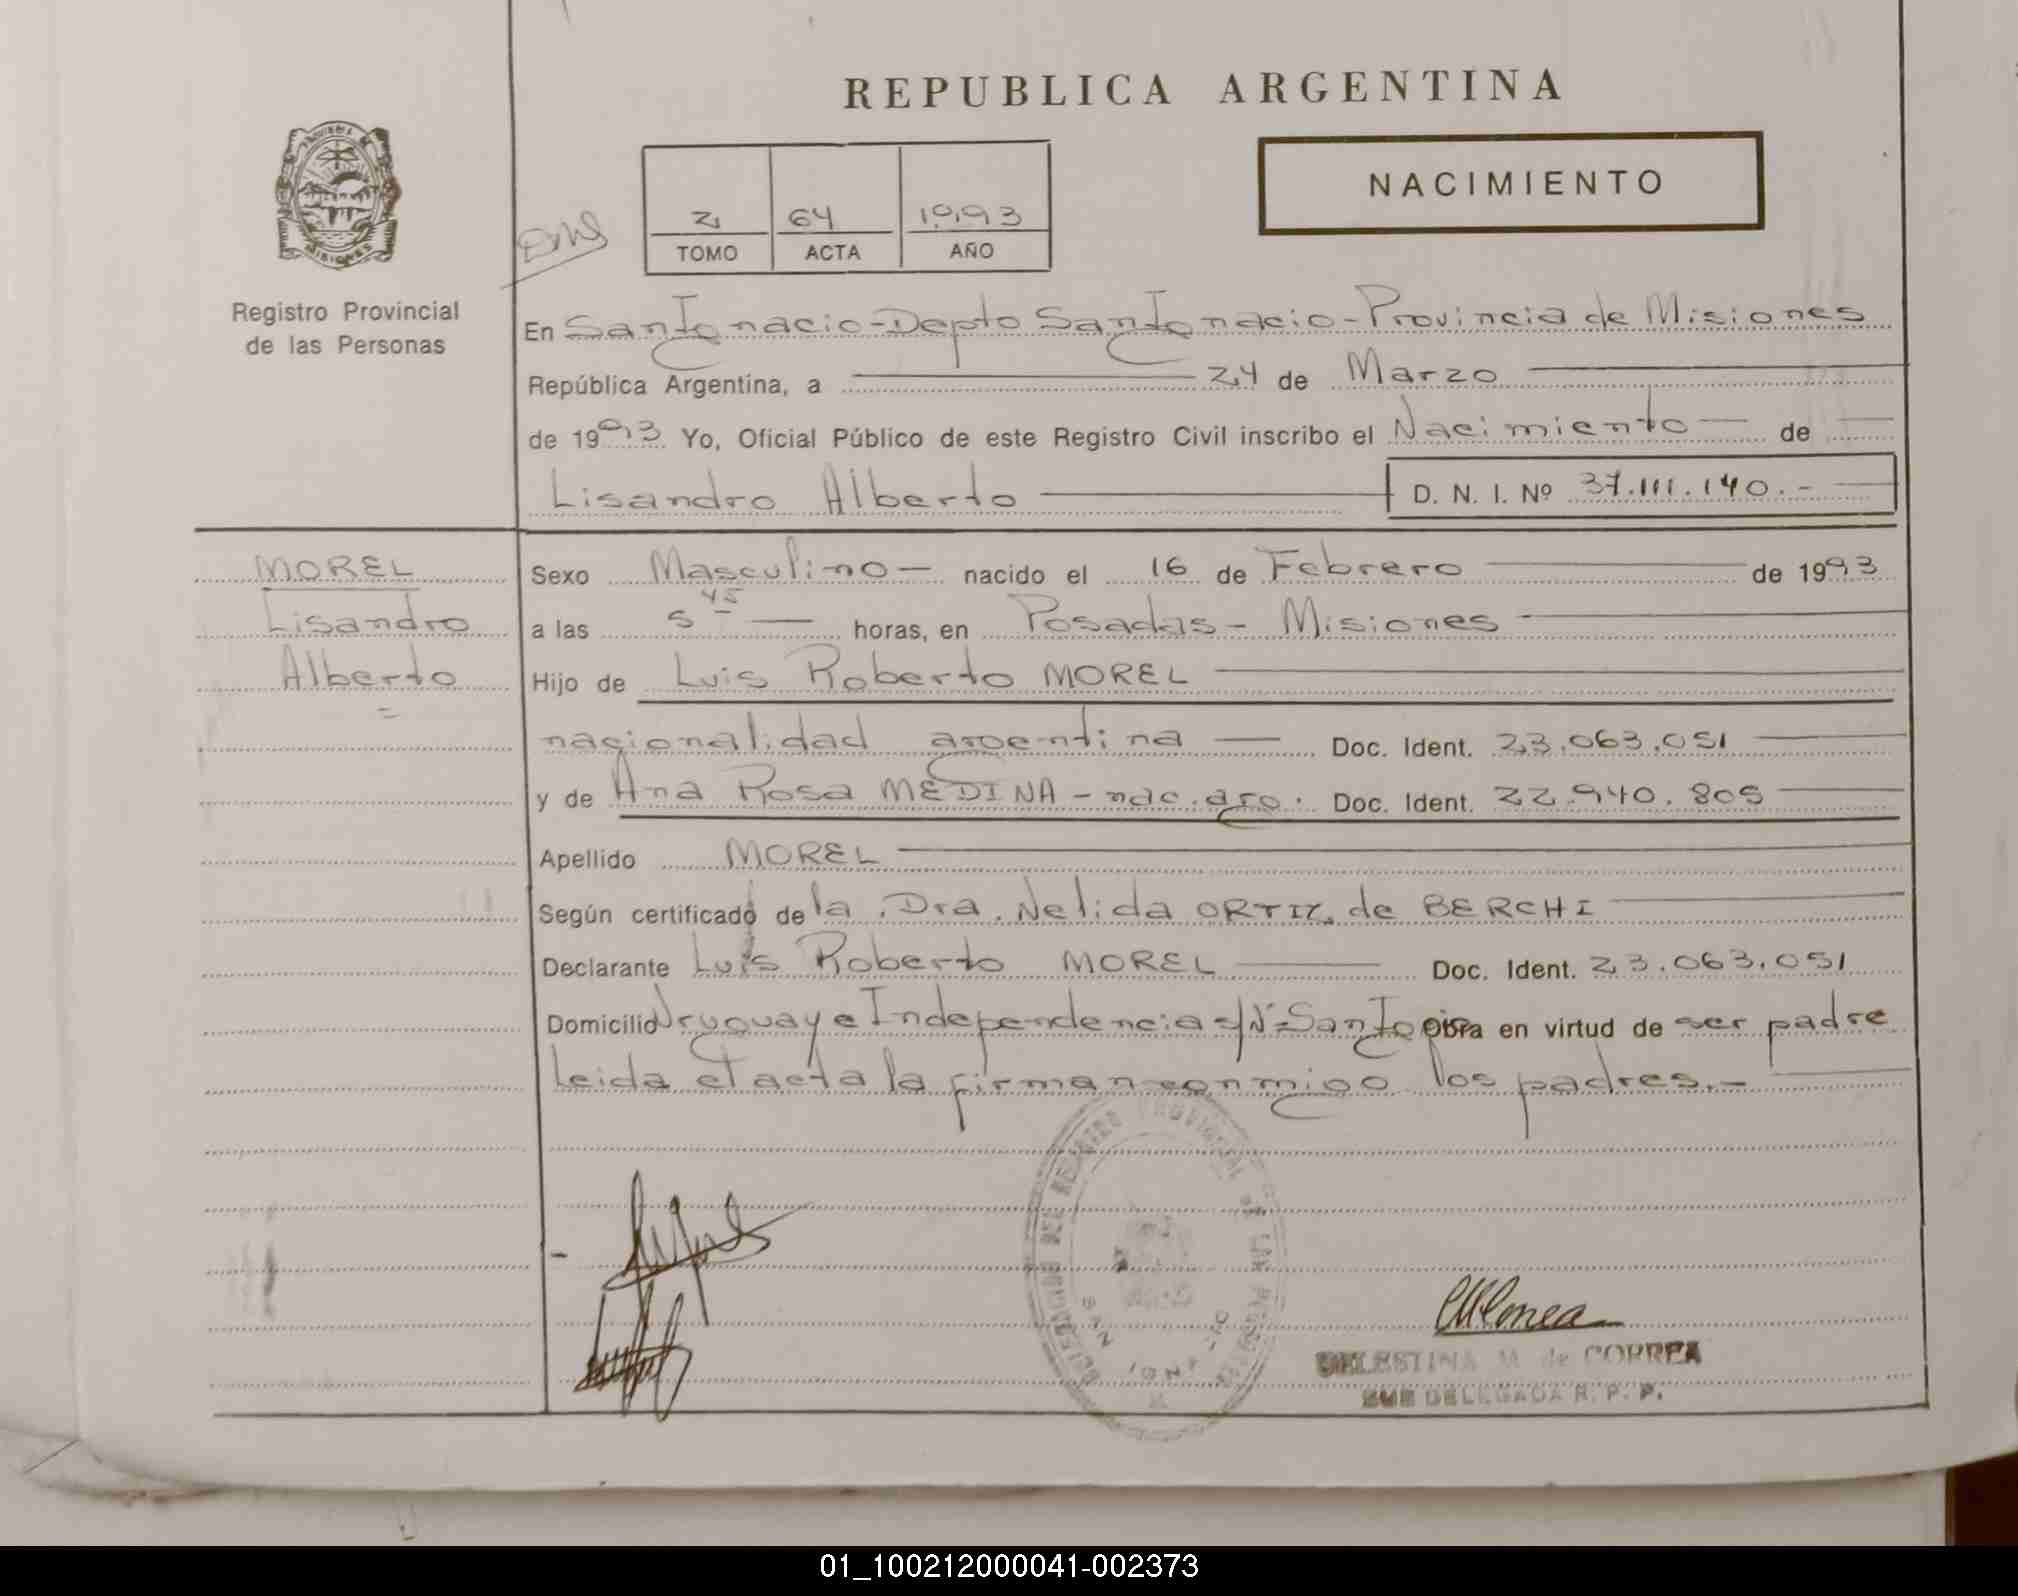 REPUBLICA ARGENTINA
NACIMIENTO
2 64 1993
TOMO ACTA AÑO
Registro Provincial
de las Personas
En San Ignacio - Depto San Ignacio - Provincia de Misiones
República Argentina, a 24 de Marzo
de 1993 Yo, Oficial Público de este Registro Civil inscribo el Nacimiento de
Lisandro Alberto D. N. I. Nº 37.111.140.-
MOREL
Lisandro
Alberto
Sexo Masculino nacido el 16 de Febrero de 1993
a las 5 45 horas, en Posadas - Misiones
Hijo de Luis Roberto MOREL
nacionalidad argentina Doc. Ident. 23.063.051
y de Ana Rosa MEDINA - nac. arg. Doc. Ident. 22.940.805
Apellido MOREL
Según certificado de la Dra. Nelida ORTIZ de BERCHI
Declarante Luis Roberto MOREL Doc. Ident. 23.063.051
Domicilio Uruguay e Independencia S/Nº San Ig Obra en virtud de ser padre
Leida el acta la firman conmigo los padres.-
DELEGACION DEL REGISTRO PROVINCIAL DE LAS PERSONAS
SAN IGNACIO
CELESTINA M. de CORREA
SUB DELEGADA R. P. P.
01_100212000041-002373